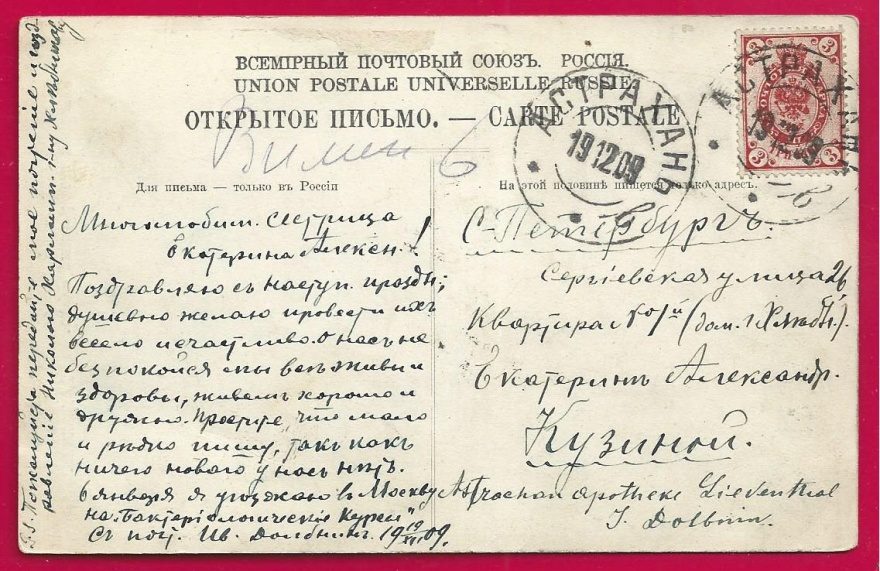 ВСЕМІРНЫЙ ПОЧТОВЫЙ СОЮЗЪ. РОССІЯ.
UNION POSTALE UNIVERSELLE RUSSIE
ОТКРЫТОЕ ПИСЬМО. — CARTE POSTALE
АСТРАХАНЬ
19 12 09
3
3
3
3
АСТРАХАНЬ
Для письма — только въ Россіи
На этой половинѣ пишется только адресъ.
Многолюбим. Сестрица
Екатерина Алексан.!
Поздравляю съ наступ. праздн;
душевно желаю провести ихъ
весело и счастливо. О насъ не
безпокойся мы всѣ живы и
здоровы, живемъ хорошо и
дружно. Простите, что мало
и рѣдко пишу, такъ какъ
ничего новаго у насъ нѣтъ.
6 января я уѣзжаю в Москву
на "Бактеріологическіе Курсы"
Съ поч. Ив. Долбнинъ. 19 19/XII 09.
С-Петербургъ.
Сергіевская улица 26
Квартира №1й (дом. г.
Екатеринѣ Александр.
Кузиной.
Astrachan Apotheke Lieventhal
J. Dolbnin.
P.S. Пожалуйста передайте мое почтеніе и позд
равленіе Николаю